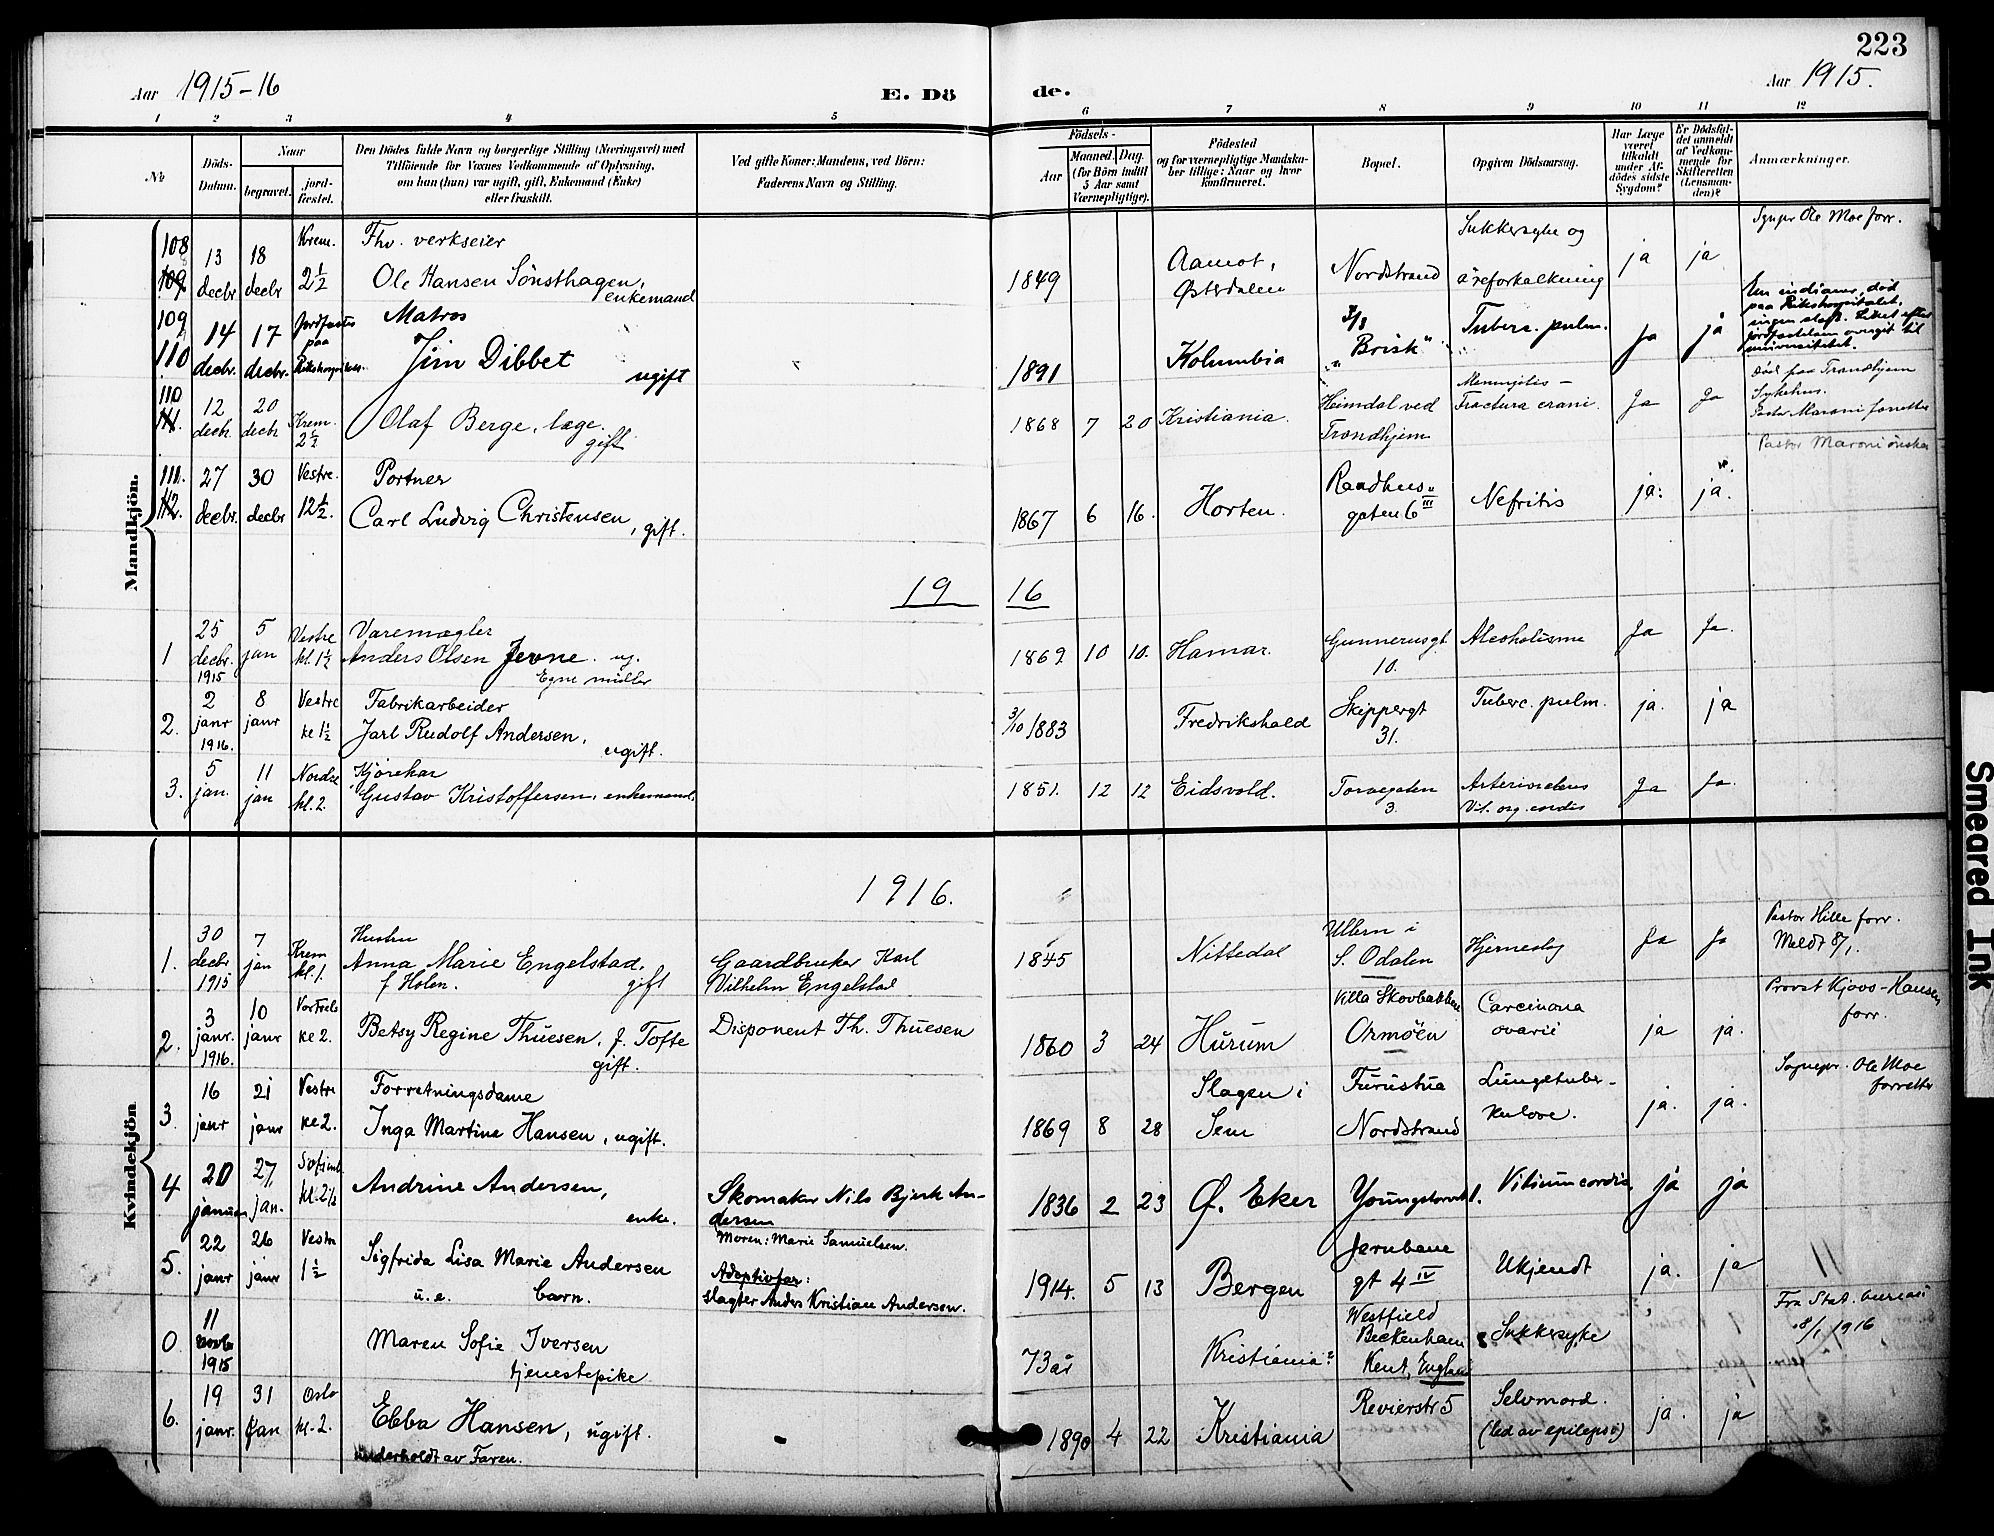 223
Aar 1915-16
E. Dö
de.
Aar 1915.
1 2 3 4 5 6 7 8 9 10 11 12
№
Döds-
Datum.
Naar
begravet.
jord-
fæstet.
Den Dödes fulde Navn og borgerlige Stilling (Næringsvei) med
Tilföiende for Voxnes Vedkommende af Oplysning,
om han (hun) var ugift, gift, Enkemand (Enke)
eller fraskilt.
Ved gifte Koner: Mandens, ved Börn:
Faderens Navn og Stilling.
Födsels-
Aar
Maaned. Dag.
(for Börn indtil
5 Aar samt
Værnepligtige).
Födested
og for værnepligtige Mandska-
ber tillige: Naar og hvor
konfirmeret.
Bopæl.
Opgiven Dödsaarsag.
Har Læge
været
tilkaldt
under Af-
dödes sidste
Sygdom?
Er Dödsfal-
det anmeldt
af Vedkom-
mende for
Skifteretten
(Lensman-
den)?
Anmærkninger.
Mandkjön.
108
109
13
decbr
18
decbr
Krem.
2 1/2
Fhv. verkseier
Ole Hansen Sönsthagen,
enkemand
1849
Aamot,
Østerdalen
Nordstrand
Sukkersyke og
åreforkalkning
ja ja
Sgnpr Ole Moe forr.
109
110
14
decbr.
17
decbr.
Jordfæstes
paa
Rikshospitalet
Matros
Jim Dibbet
ugift
1891
Kolumbia
S/S
"Brisk"
Tuberc. pulm.
Ja ja
En indianer, död
paa Rikshospitalet,
ingen slegt. Liket efter
jordfæstelsen overgit til
universitetet.
110
111.
12
decbr.
20
decbr
Krem.
2 1/2
Olaf Berge, læge.
gift
1868 7 20 Kristiania.
Heimdal ved
Trondhjem
Meningitis -
Fractura crani.
Ja Ja
Död paa Trondhjem
Sykehus.
Pastor Maroni forretter
Pastor Maroni önskes
111.
112.
27
decbr.
30
decbr
Vestre.
12 1/2.
Portner
Carl Ludvig Christensen, gift.
1867 6 16. Horten.
Raadhus-
gaten 6 III
Nefritis
ja. ja.
1916
1
25
decbr.
1915
5
jan
Vestre
kl. 1 1/2
Varemægler
Anders Olsen Jevne. ug.
Egne midler
1869 10 10. Hamar.
Gunnerusgt.
10.
Alcoholisme
Ja Ja.
2.
2
janr
1916.
8
janr
Vestre
kl 1 1/2
Fabrikarbeider
Jarl Rudolf Andersen,
ugift.
3/10 1883
Fredrikshald
Skippergt
31.
Tuberc. pulm.
ja. ja
3.
5
jan.
11
jan
Nordre
kl. 2.
Kjörekar
Gustav Kristoffersen, enkemand.
1851. 12 12 Eidsvold.
Torvegaten
3.
Vit. org. cordis
Ja Ja.
Kvindekjön
1916.
1.
30
decbr
1915
7
jan
Krem
kl. 1
Hustru
Anna Marie Engelstad,
f Holen. gift
Gaardbruker Karl
Vilhelm Engelstad
1845
Nittedal
Ullern i
S. Odalen
Hjerneslag
Ja Ja
Pastor Hille forr.
Meldt 8/1.
2.
3
janr.
1916.
10
janr
kl 2.
Betsy Regine Thuesen, f. Tofte
gift.
Disponent Th. Thuesen
1860 3 24 Hurum
Villa Skovbakken
Ormöen
Carcinoma
ovarii
ja ja.
Provst Kjoos-Hansen
forr.
3.
16
janr
21
janr
Vestre
kl 2.
Forretningsdame
Inga Martine Hansen, ugift.
1869 8 28
Slagen i
Sem
Furustua
Nordstrand
Lungetuber-
kulose.
ja. ja.
Sognepr. Ole Moe
forretter
4
20
januar
27
jan.
kl. 2 1/2
Andrine Andersen,
enke.
Skomaker Nils Bjerk An-
dersen
1836 2 23 Ø. Eker
Youngstorvet 1.
Vitium cordis.
ja ja
5.
22
janr
26
janr
Vestre
1 1/2
Sigfrida Lisa Marie Andersen
u.e. barn.
Moren: Marie Samuelsen.
Adoptivfar:
slagter Anders Kristian Andersen.
1914. 5 13 Bergen
Jernbane
gt 4 IV
Ukjendt
ja. ja
11
0
11
novbr
1915
Maren Sofie Iversen
tjenestepike
73 år
Kristiania?
Westfield
Beckenham
Kent, England
Sukkersyke
Fra Stat. bureau
18/1 1916
6.
19
janr.
31
jan
Oslo
kl. 2.
Ebba Hansen, ugift.
Underholdt av Faren.
1890 4 22 Kristiania
Revierstr 5
Selvmord.
(led av epilepsi)
ja. ja
Smeared Ink